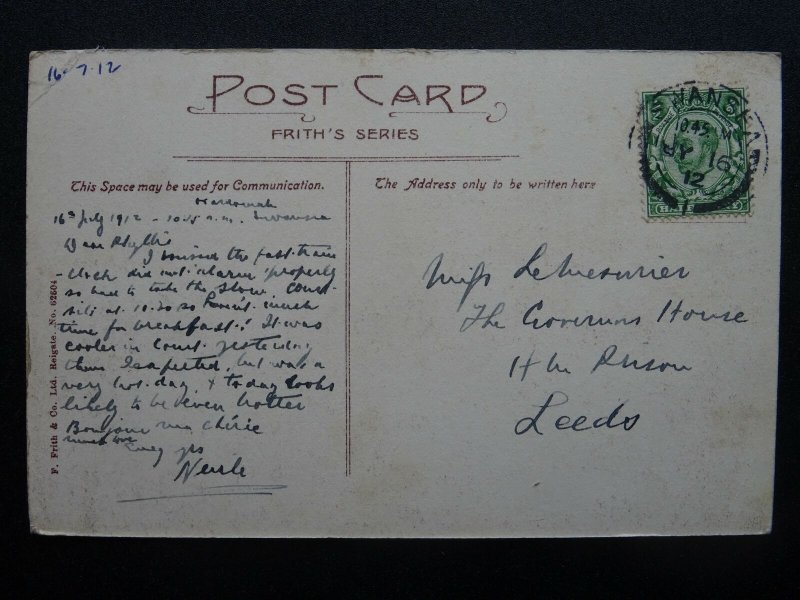 16-7-12
POST CARD
FRITH'S SERIES
This Space may be used for Communication.
The Address only to be written here
SWANSEA
10.45 M
JY 16
12
1
16th July 1912 - 10.15 a.m. Swansea
Dear Phyllis
I missed the fast train
- Clock did not alarm properly
so had to take the slow. Court
sits at 10.30 so haven't much
time for breakfast! It was
cooler in Court yesterday
than I expected, but was a
very hot day, & today looks
likely to be even hotter
Bonjour ma chérie
much love
Neville
Miss LeMesurier
The Governors House
H M Prison
Leeds
F. Frith & Co. Ltd. Reigate. No. 62604